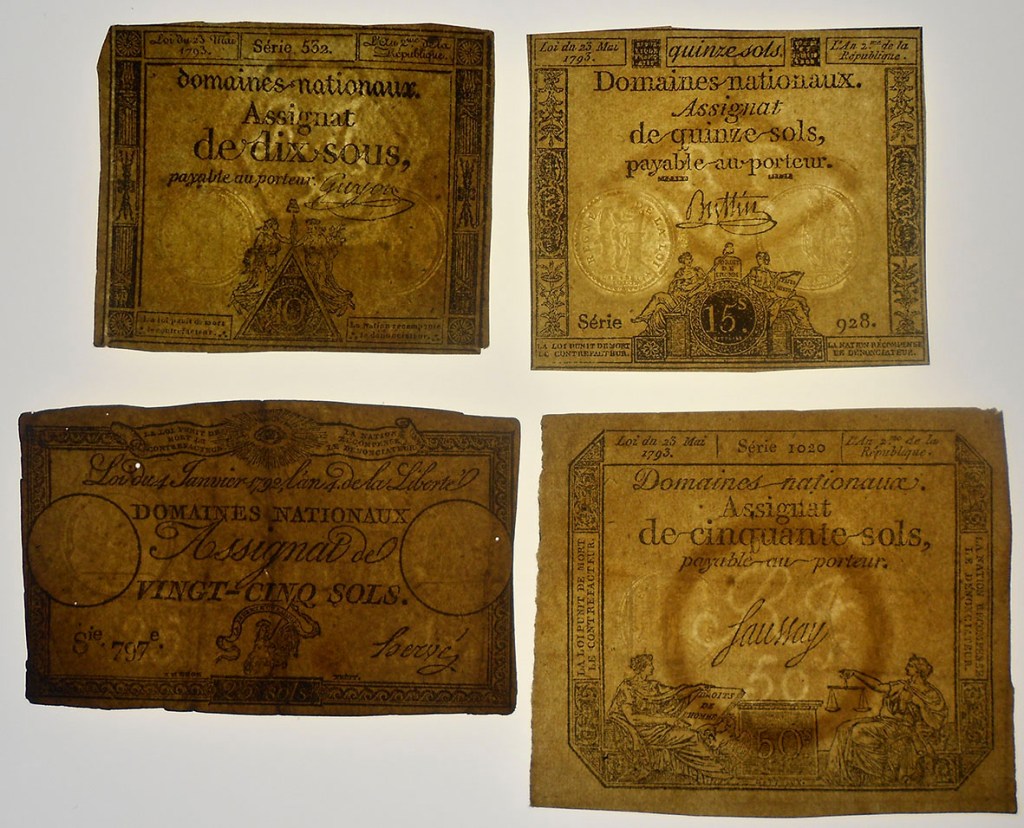 Loi du 23 Mai
1793.
Série 532.
L'An 2me de la
République.
domaines nationaux.
Assignat
de dix sous,
payable au porteur.
Guyon
10
La loi punit de mort
le contrefacteur.
La Nation récompense
le dénonciateur.
Loi du 23 Mai
1793.
quinze sols.
L'An 2me de la
République.
Domaines nationaux.
Assignat
de quinze sols,
payable au porteur.
Buttin
15s
Série
928.
LA LOI PUNIT DE MORT
LE CONTREFACTEUR.
LA NATION RÉCOMPENSE
LE DÉNONCIATEUR.
LA LOI PUNIT DE
MORT LE
CONTREFACTEUR
LA NATION
RÉCOMPENSE
LE DÉNONCIATEUR
Loi du 4 Janvier 1792, l'an 4. de la Liberté
DOMAINES NATIONAUX
Assignat de
VINGT-CINQ SOLS.
Sie. 797e.
Hervé
25 sols
Loi du 23 Mai
1793.
Série 1020
L'An 2me de la
République.
Domaines nationaux.
Assignat
de cinquante sols,
payable au porteur.
LA LOI PUNIT DE MORT
LE CONTREFACTEUR.
LA NATION RÉCOMPENSE
LE DÉNONCIATEUR.
Saussay
50
DROITS
DE
L'HOMME
50